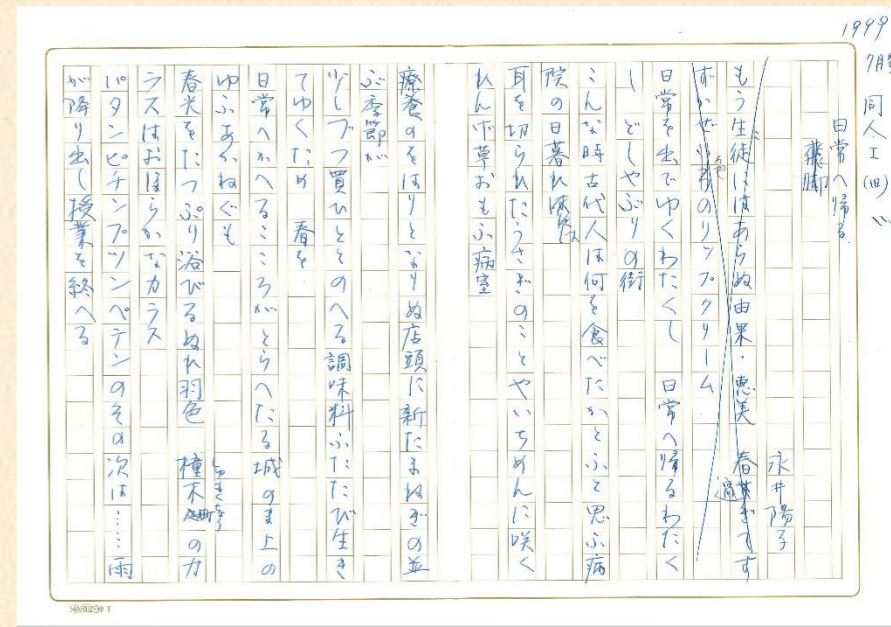 1999
7月号 同人Ⅰ(四)
日常へ帰る
藤脚
永井陽子
もう生徒にはあらぬ由果・恵美 春過ぎてす
ずかぜ色のリンプクリーム
日常を出でゆくわたくし 日常へ帰るわたく
し どしやぶりの街
こんな時古代人は何を食べたかとふと思ふ病
院の日暮れ
耳を切られたうさぎのことやいちめんに咲く
れんげ草おもふ病室
療養のをはりとなりぬ店頭に新たまねぎの並
ぶ季節が
少しづつ買ひととのへる調味料ふたたび生き
てゆくため 春を
日常へかへるこころがとらへたる城のま上の
ゆふあかねぐも
春光をたつぷり浴びるぬれ羽色 橦木町の力
ラスはおほらかなカラス
パタンピチンプツンペテンのその次は……雨
が降り出し授業を終へる